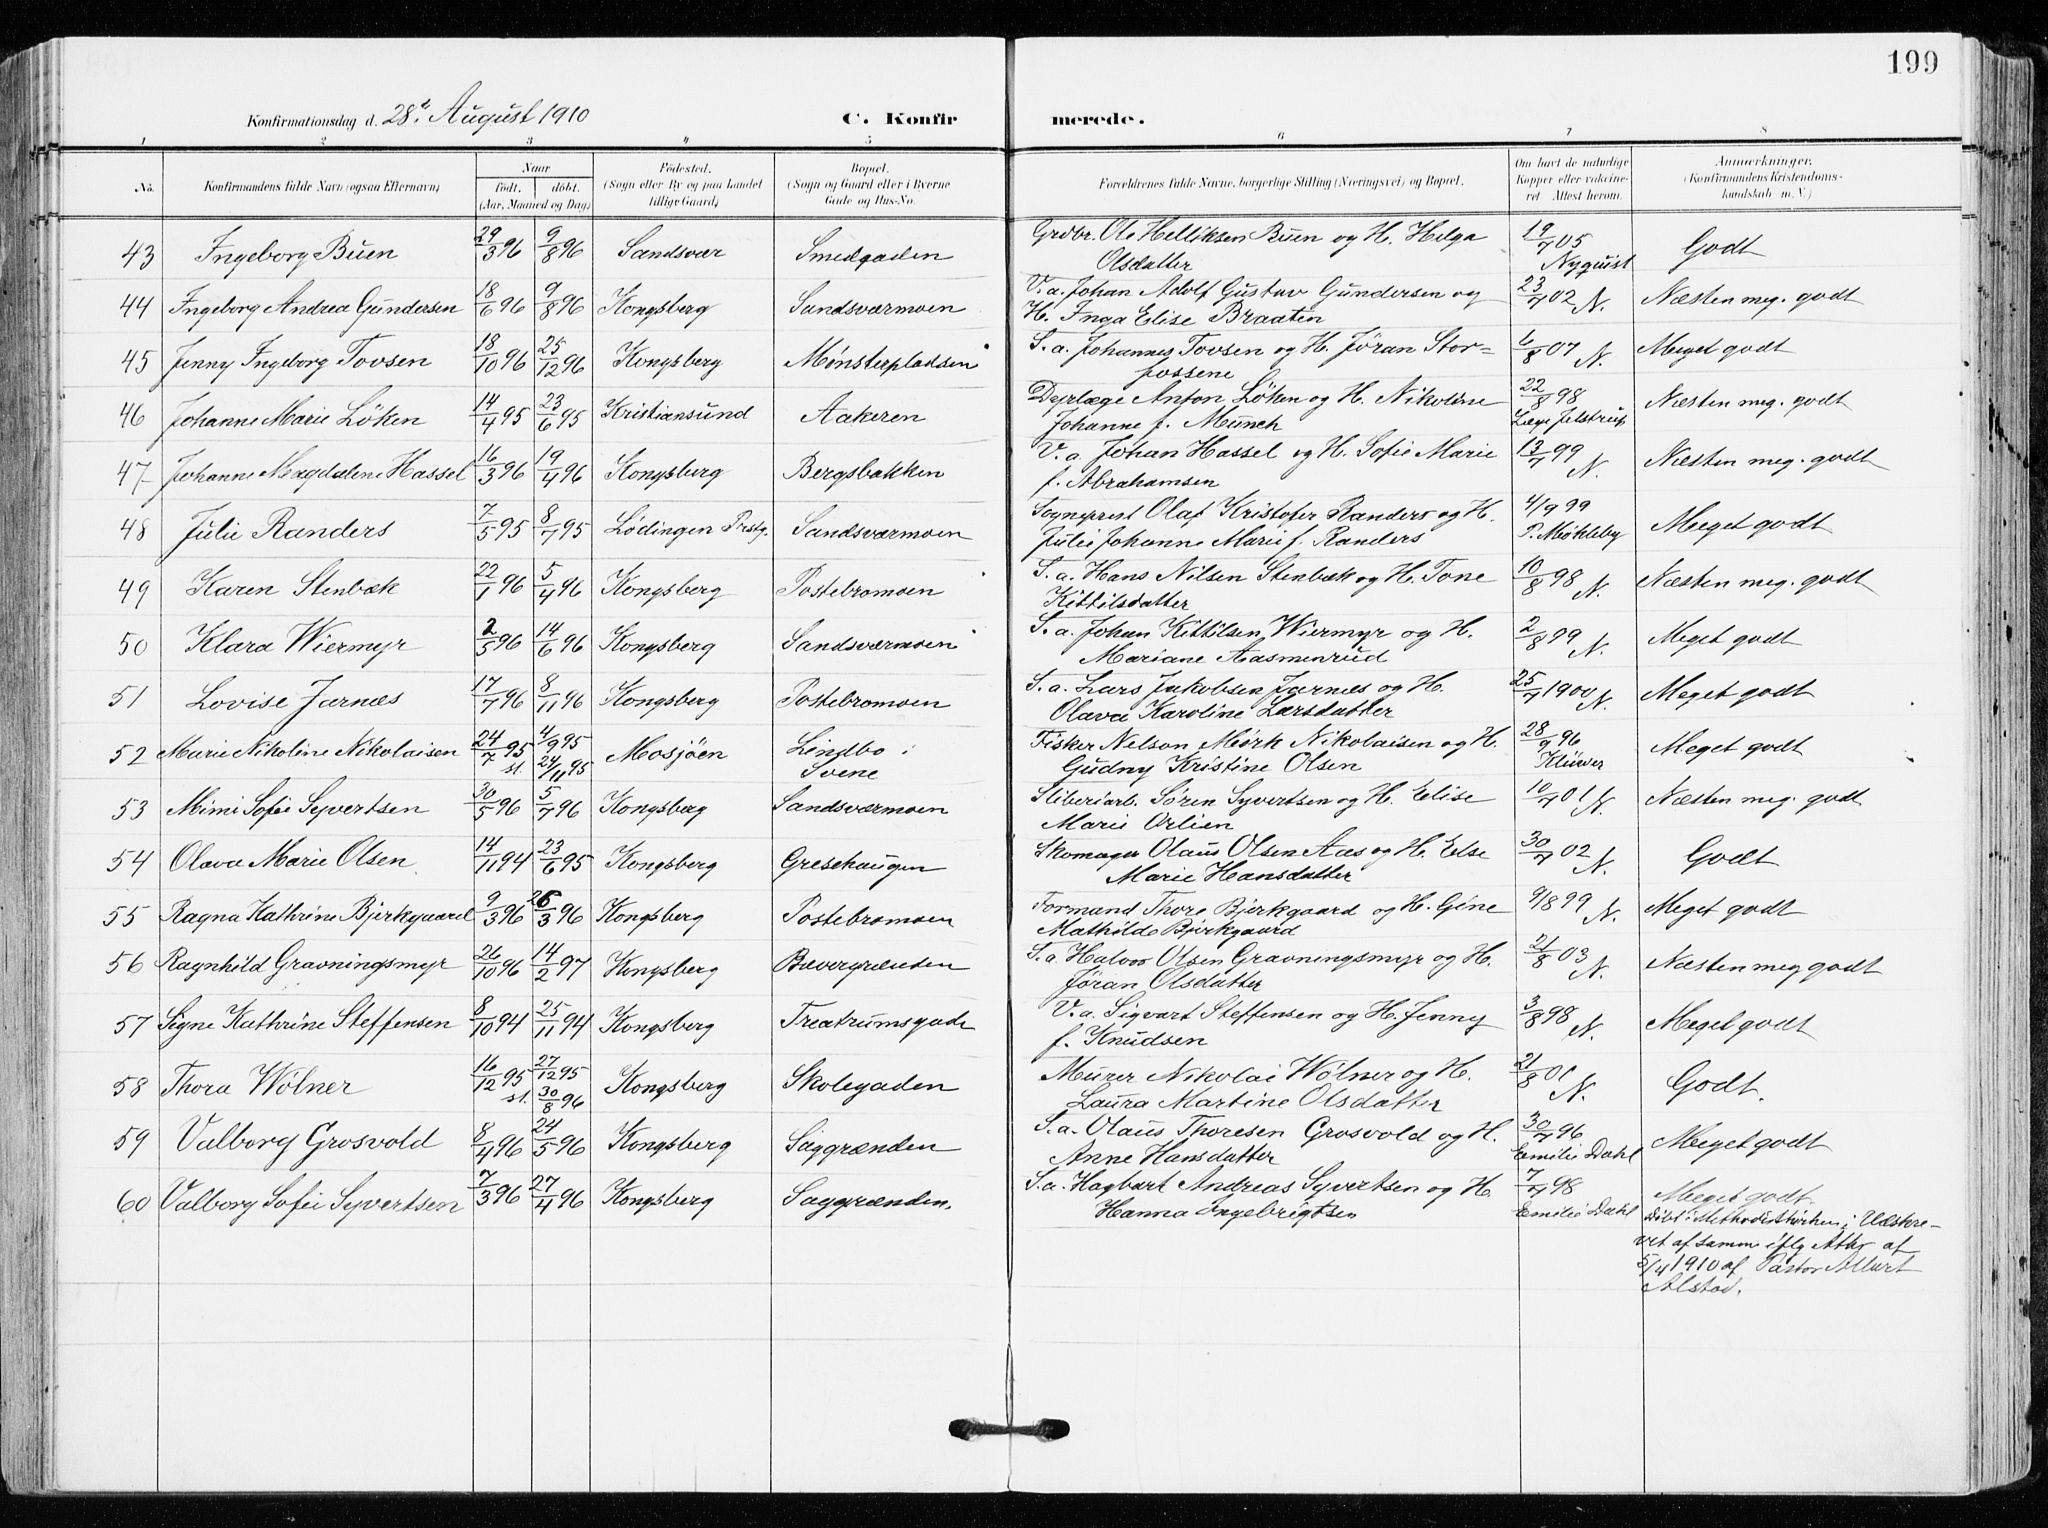 199
Konfirmationsdag d. 28de August 1910 C. Konfir merede.
1 2 3 4 5 6 7 8
No. Konfirmandens fulde Navn (ogsaa Efternavn) Naar født. døbt. (Aar, Maaned og Dag) Fødested. (Sogn eller By og paa Landet tillige Gaard) Bopæl. (Sogn og Gaard eller i Byerne Gade og Hus-No. Forældrenes fulde Navne, borgerlige Stilling (Næringsvei) og Bopæl. Om havt de naturlige Kopper eller vakcineret Attest herom. Anmærkninger. (Konfirmandens Kristendomskundskab m. V.)
43 Ingeborg Buen 29/3 96 9/8 96 Sandsvær Smedgaden Grdbr. Ole Helliksen Buen og H. Helga 19/7 05 Godt
Olsdatter Nyquist
44 Ingeborg Andrea Gundersen 18/6 96 9/8 96 Kongsberg Sandsværmoen V.a. Johan Adolf Gustav Gundersen og 23/7 02 N. Næsten meg. godt
H. Inga Elise Braaten
45 Jenny Ingeborg Tovsen 18/10 96 25/12 96 Kongsberg Mønsterpladsen S.a. Johannes Tovsen og H. Jøran Stor= 6/8 07 N. Meget godt
fossene
46 Johanne Marie Löken 14/4 95 23/6 95 Kristiansund Aakeren Anton Löken og H. Nikoline 22/8 98 Næsten meg. godt
Johanne f. Munch Læge Jelstrup
47 Johanne Magdalene Hassel 16/3 96 19/4 96 Kongsberg Bergsbakken V.a. Johan Hassel og H. Sofie Marie 13/7 99 N. Næsten meg. godt
f. Abrahamsen
48 Julie Randers 7/5 95 8/7 95 Lødingen Prstg. Sandsværmoen Sogneprest Olaf Kristofer Randers og H. 4/9 99 Meget godt
Julie Johanne Marie f. Randers P. Møkleby
49 Karen Stenbæk 22/1 96 5/4 96 Kongsberg Postebromoen S.a. Hans Nilsen Stenbæk og H. Tone 10/8 98 N. Næsten meg. godt
Kittilsdatter
50 Klara Wiermyr 2/5 96 14/6 96 Kongsberg Sandsværmoen S.a. Johan Kittilsen Wiermyr og H. 2/8 99 N. Meget godt
Mariane Aasmenrud
51 Lovise Jarnæs 17/7 96 8/11 96 Kongsberg Postebromoen S.a. Lars Jakobsen Jarnæs og H. 25/7 1900 N. Meget godt
Olava Karoline Larsdatter
52 Marie Nikoline Nikolaisen 24/7 95 st. 4/9 95 24/11 95 Mosjöen Lindbo i Fisker Nelson Mørk Nikolaisen og H. 28/9 96 Meget godt
Svene Gudny Kristine Olsen Klüwer
53 Mimi Sofie Syvertsen 30/5 96 5/7 96 Kongsberg Sandsværmoen Sliberiarb. Sören Syvertsen og H. Elise 10/7 01 N. Næsten meg. godt
Marie Ørlien
54 Olava Marie Olsen 14/11 94 23/6 95 Kongsberg Gresehaugen Skomager Olaus Olsen Aas og H. Else 30/7 02 N. Godt
Marie Hansdatter
55 Ragna Kathrine Bjerkgaard 9/3 96 26/3 96 Kongsberg Postebromoen Formand Thore Bjerkgaard og H. Gine 9/8 99 N. Meget godt
Mathilde Bjerkgaard
56 Ragnhild Gravningsmyr 26/10 96 14/2 97 Kongsberg Bævergrænden S.a. Halvor Olsen Gravningsmyr og H. 21/8 03 N. Næsten meg godt
Jøran Olsdatter
57 Signe Kathrine Steffensen 8/10 94 25/11 94 Kongsberg Treatrumsgade V.a. Sigvart Steffensen og H. Jenny 3/8 98 N. Meget godt
f. Knudsen
58 Thora Wölner 16/12 95 st. 27/12 95 30/8 96 Kongsberg Skolegaden Murer Nikolai Wölner og H. 21/8 01 N. Godt.
Laura Martine Olsdatter
59 Valborg Grosvold 8/4 96 24/5 96 Kongsberg Saggrænden S.a. Olaus Thoresen Grosvold og H. 30/7 96 Meget godt
Anne Hansdatter Emilie Dahl
60 Valborg Sofie Syvertsen 7/3 96 27/4 96 Kongsberg Saggrænden. S.a. Hagbart Andreas Syvertsen og H. 7/7 98 Meget godt.
Hanna Ingebrigtsen Emilie Dahl Döbt i Methodistkirken i
af samme iflg Attest af
5/4 1910 af Pastor
Alstad.